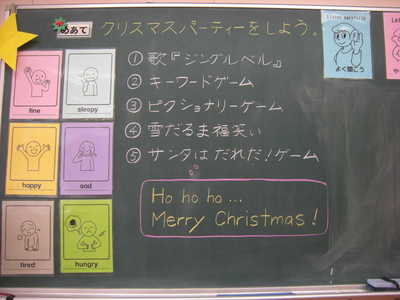 めあて クリスマスパーティーをしよう。
① 歌『ジングルベル』
② キーワードゲーム
③ ピクショナリーゲーム
④ 雪だるま福笑い
⑤ サンタはだれだ!ゲーム
Ho ho ho ...
Merry Christmas!
fine
sleepy
happy
sad
tired
hungry
よく聞こう